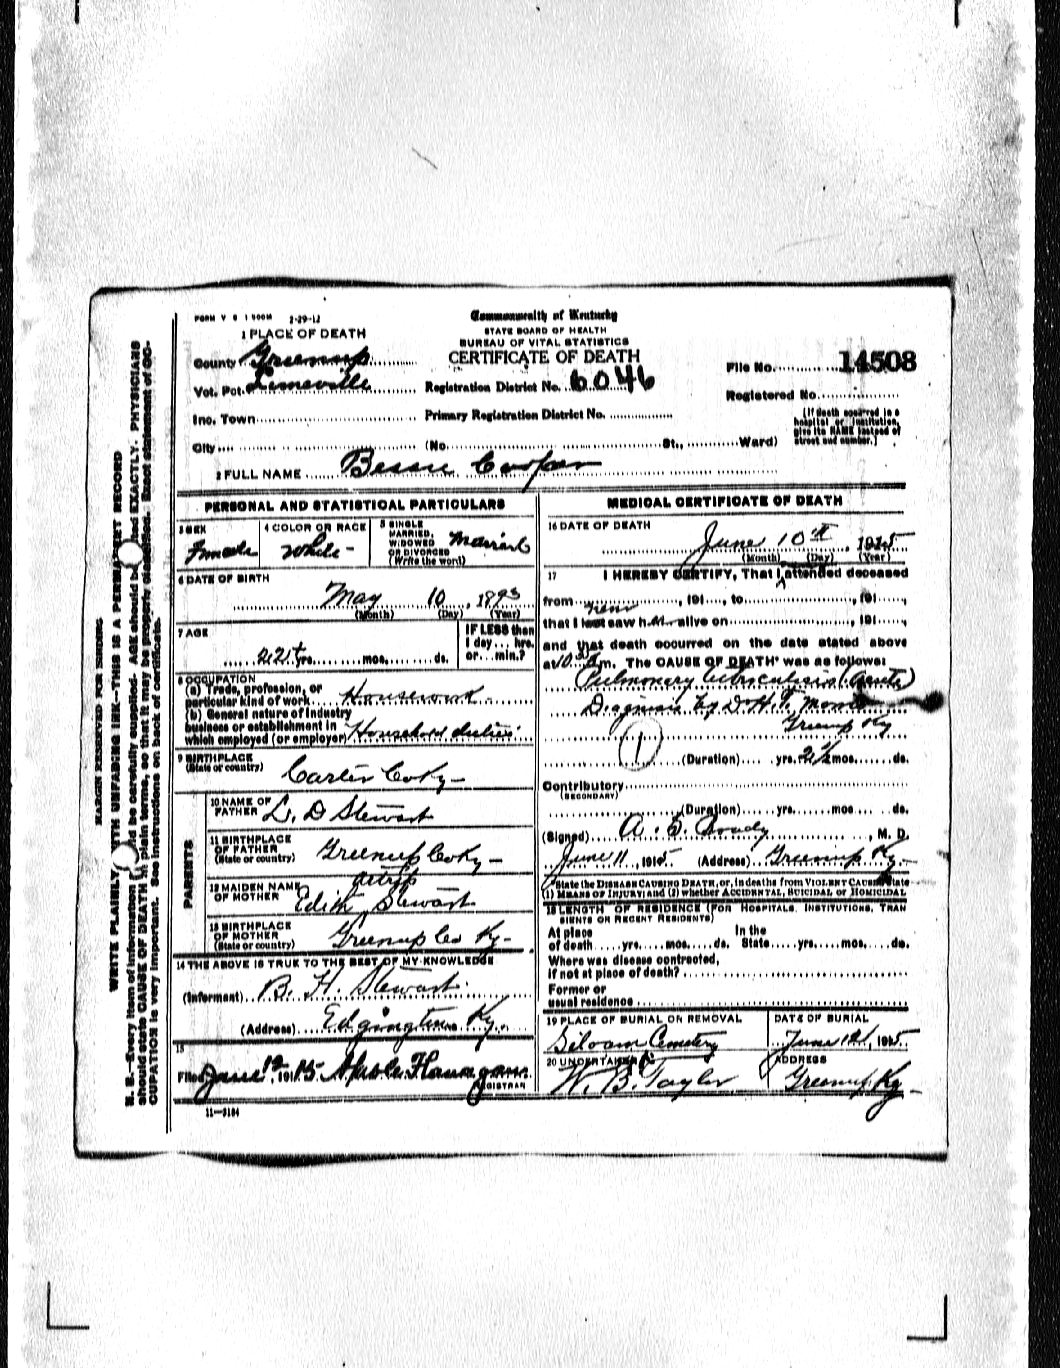 FORM V S 1 500M 2-29-12
1 PLACE OF DEATH
County Greenup
Vot. Pct. Limeville
Inc. Town
City (No. St., Ward)
Commonwealth of Kentucky
STATE BOARD OF HEALTH
BUREAU OF VITAL STATISTICS
CERTIFICATE OF DEATH
Registration District No. 6046
Primary Registration District No.
File No. 14508
Registered No.
(If death occurred in a
hospital or institution,
give its NAME instead of
street and number.)
2 FULL NAME Bessie Cooper
PERSONAL AND STATISTICAL PARTICULARS
3 SEX
Female
4 COLOR OR RACE
White
5 SINGLE
MARRIED,
WIDOWED
OR DIVORCED
(Write the word)
Married
6 DATE OF BIRTH
May 10, 1893
(Month) (Day) (Year)
7 AGE
22 yrs. mos. ds.
IF LESS than
1 day... hrs.
or... min.?
8 OCCUPATION
(a) Trade, profession, or
particular kind of work Housework
(b) General nature of industry
business or establishment in
which employed (or employer) Household duties
9 BIRTHPLACE
(State or country)
Carter Co Ky-
PARENTS
10 NAME OF
FATHER L. D Stewart
11 BIRTHPLACE
OF FATHER
(State or country)
Greenup Co Ky-
12 MAIDEN NAME
OF MOTHER Edith Stewart
13 BIRTHPLACE
OF MOTHER
(State or country)
Greenup Co Ky-
14 THE ABOVE IS TRUE TO THE BEST OF MY KNOWLEDGE
(Informant) B. H. Stewart
(Address) Edgington Ky.
15
Filed June 12, 1915 Flanagan
REGISTRAR
11-3184
MEDICAL CERTIFICATE OF DEATH
16 DATE OF DEATH
June 10th, 1915
(Month) (Day) (Year)
17 I HEREBY CERTIFY, That I attended deceased
from, 191..., to, 191...,
that I last saw h alive on, 191...,
and that death occurred on the date stated above
at 10 m. The CAUSE OF DEATH* was as follows:
Pulmonary tuberculosis (Acute)
Diagnosis by Dr H. T. Morris
Greenup Ky
1
(Duration) yrs. 2½ mos. ds.
Contributory
(SECONDARY)
(Duration) yrs. mos. ds.
(Signed) A. S. Brady, M. D.
June 11, 1915 (Address) Greenup Ky.-
*State the DISEASE CAUSING DEATH, or, in deaths from VIOLENT CAUSES, state
(1) MEANS OF INJURY; and (2) whether ACCIDENTAL, SUICIDAL or HOMICIDAL
18 LENGTH OF RESIDENCE (FOR HOSPITALS, INSTITUTIONS, TRAN
SIENTS OR RECENT RESIDENTS)
At place In the
of death yrs. mos. ds. State yrs. mos. ds.
Where was disease contracted,
if not at place of death?
Former or
usual residence
19 PLACE OF BURIAL OR REMOVAL
Siloam Cemetery
DATE OF BURIAL
June 12, 1915
20 UNDERTAKER
W. B. Taylor
ADDRESS
Greenup Ky-
MARGIN RESERVED FOR BINDING
WRITE PLAINLY, WITH UNFADING INK--THIS IS A PERMANENT RECORD
N. B.--Every item of information should be carefully supplied. AGE should be stated EXACTLY. PHYSICIANS
should state CAUSE OF DEATH in plain terms, so that it may be properly classified. Exact statement of OC-
CUPATION is very important. See instructions on back of certificate.